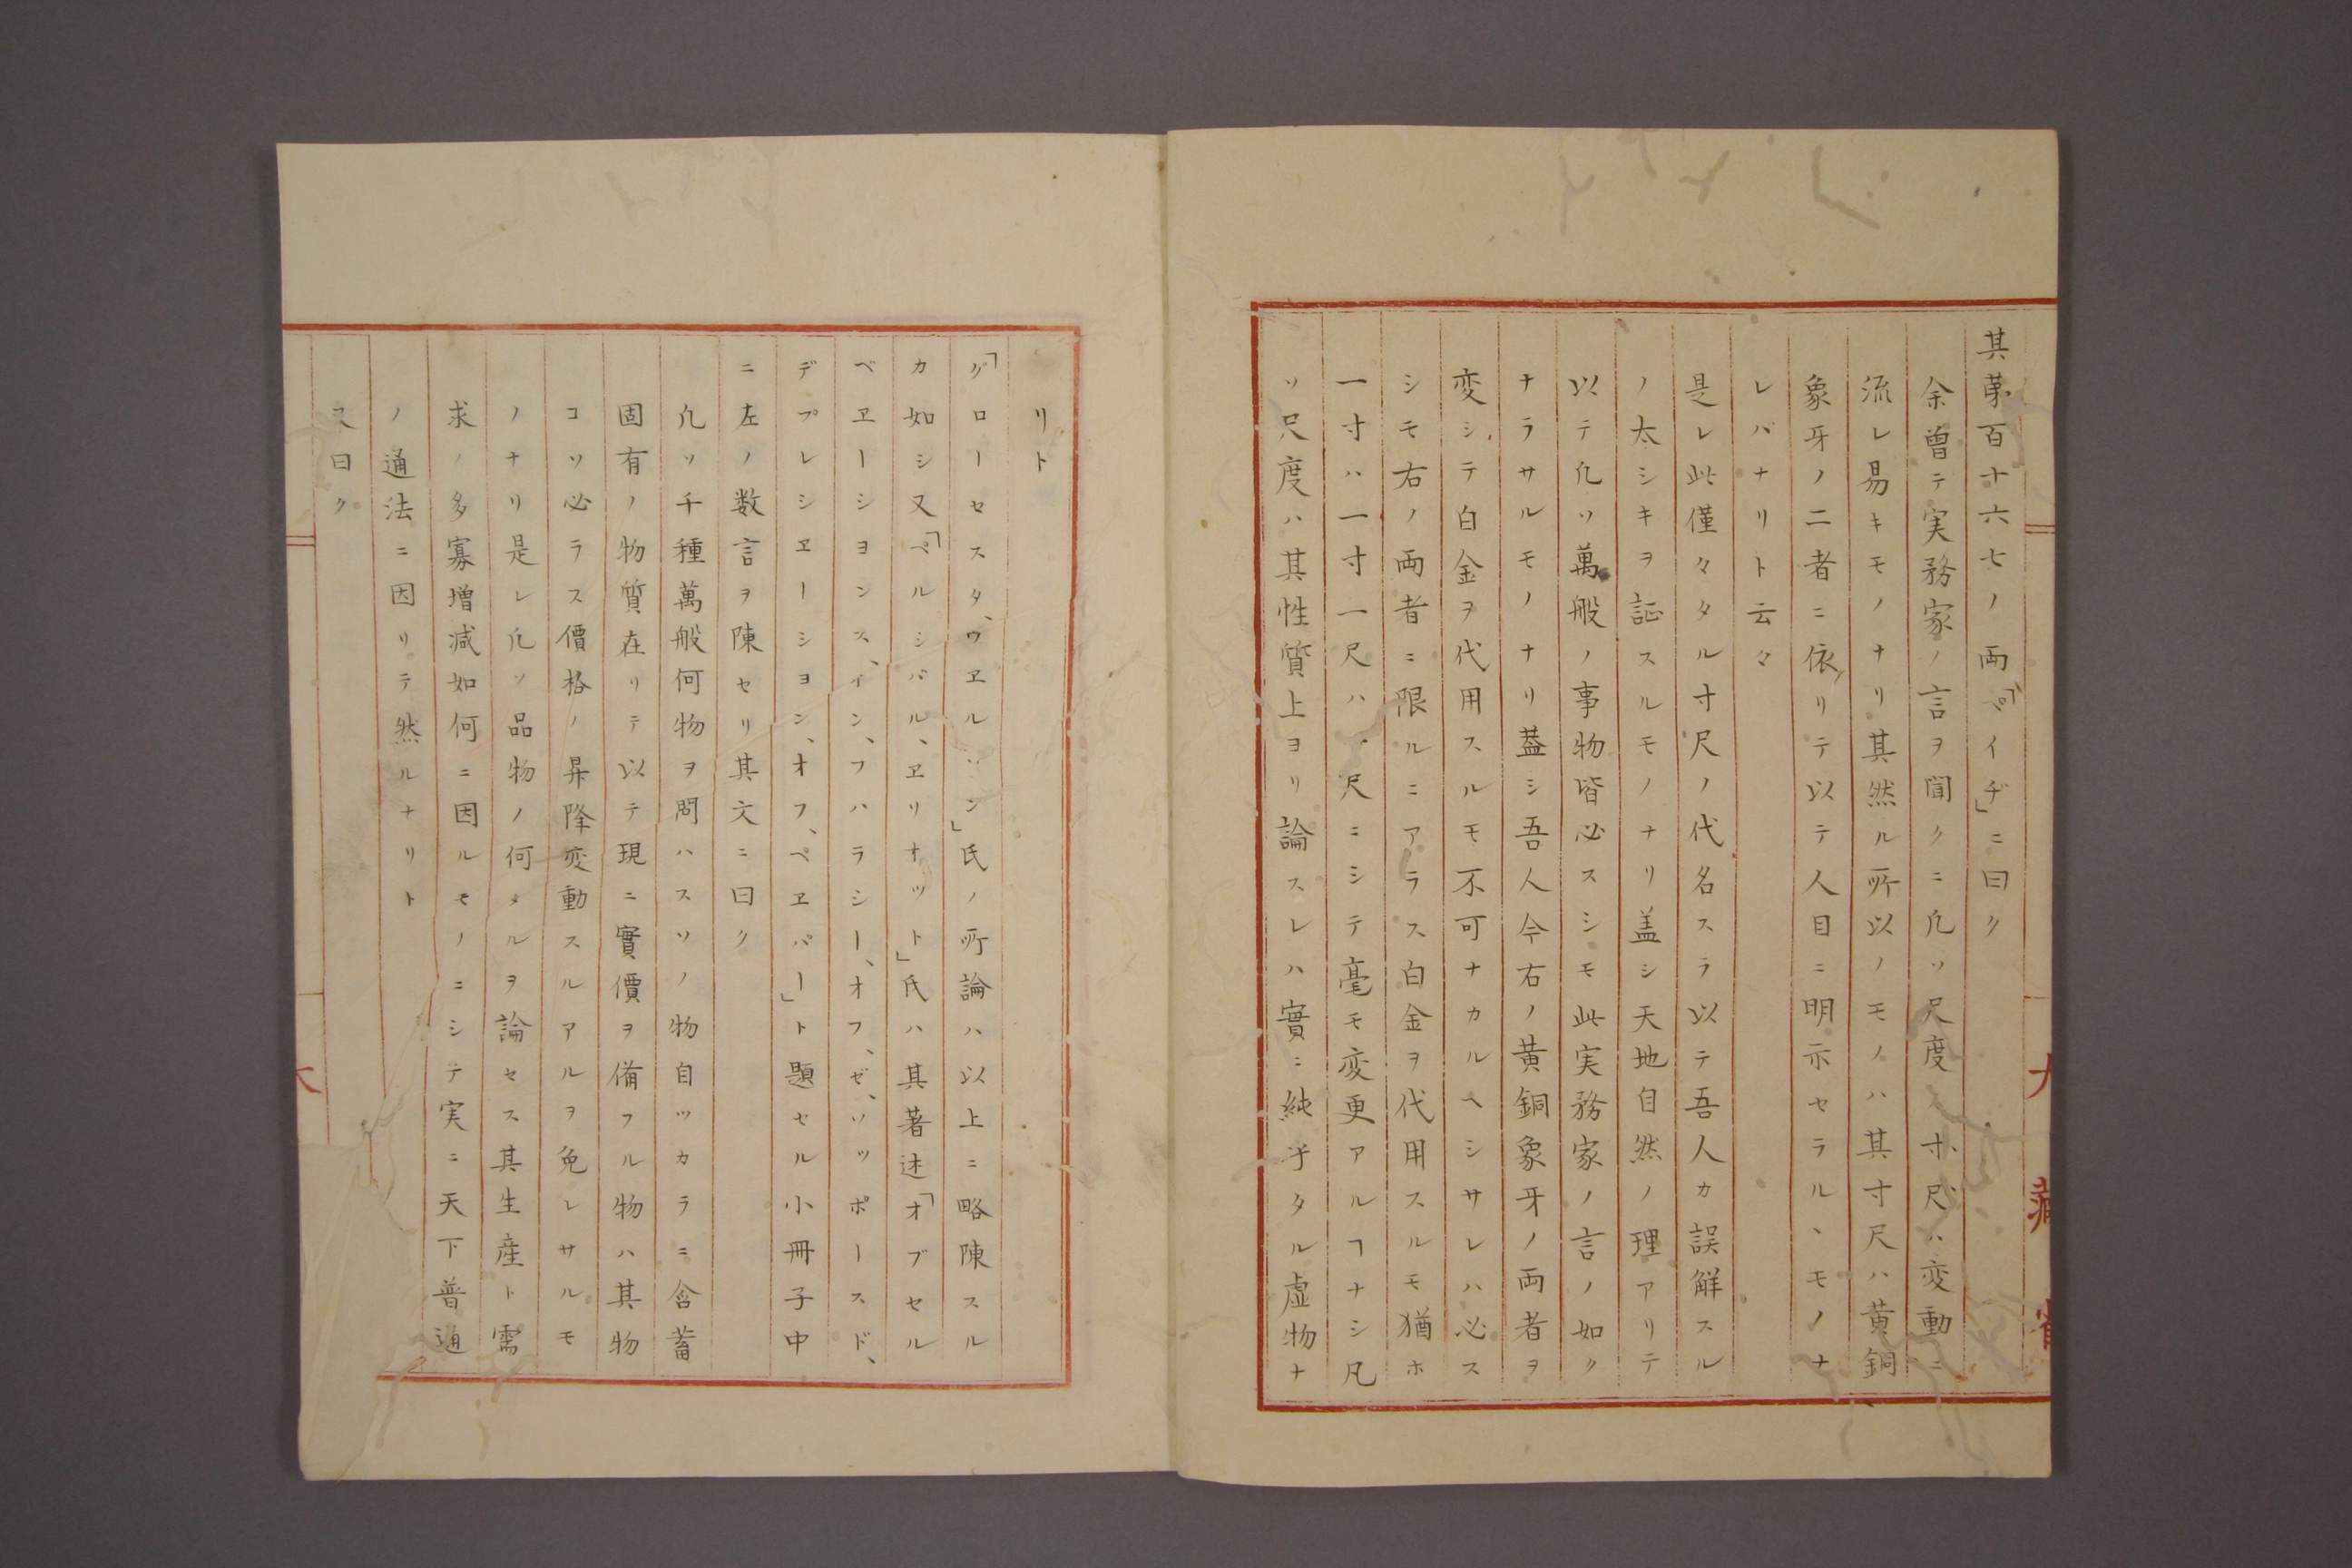 其苐百十六七ノ両「ペイヂ」ニ曰ク
余曽テ実務家ノ言ヲ聞クニ凢ソ尺度ノ寸尺ハ変動ニ
流レ易キモノナリ其然ル所以ノモノハ其寸尺ハ黄銅
象牙ノ二者ニ依リテ以テ人目ニ明示セラルヽモノナ
レバナリト云々
是レ此僅々タル寸尺ノ代名スラ以テ吾人カ誤解スル
ノ太シキヲ証スルモノナリ盖シ天地自然ノ理アリテ
以テ凢ソ萬般ノ事物皆必スシモ此実務家ノ言ノ如ク
ナラサルモノナリ葢シ吾人今右ノ黄銅象牙ノ両者ヲ
変シテ白金ヲ代用スルモ不可ナカルヘシサレハ必ス
シモ右ノ両者ニ限ルニアラス白金ヲ代用スルモ猶ホ
一寸ハ一寸一尺ハ一尺ニシテ毫モ変更アルヿナシ凡
ソ尺度ハ其性質上ヨリ論スレハ實ニ純乎タル虚物ナ
リト
「グローセスタ、ウヱルソン」氏ノ所論ハ以上ニ略陳スル
カ如シ又「ペルシバル、ヱリオット」氏ハ其著述「オブセル
ベヱーシヨンス、イン、フハラシー、オフ、ゼ、ソッポースド、
デプレシヱーシヨン、オフ、ペヱパー」ト題セル小冊子中
ニ左ノ数言ヲ陳セリ其文ニ曰ク
凢ソ千種萬般何物ヲ問ハスソノ物自ツカラニ含蓄
固有ノ物質在リテ以テ現ニ實價ヲ備フル物ハ其物
コソ必ラス價格ノ昇降変動スルアルヲ免レサルモ
ノナリ是レ凢ソ品物ノ何タルヲ論セス其生産ト需
求ノ多寡増减如何ニ因ルモノニシテ実ニ天下普通
ノ通法ニ因リテ然ルナリト
又曰ク
大藏省